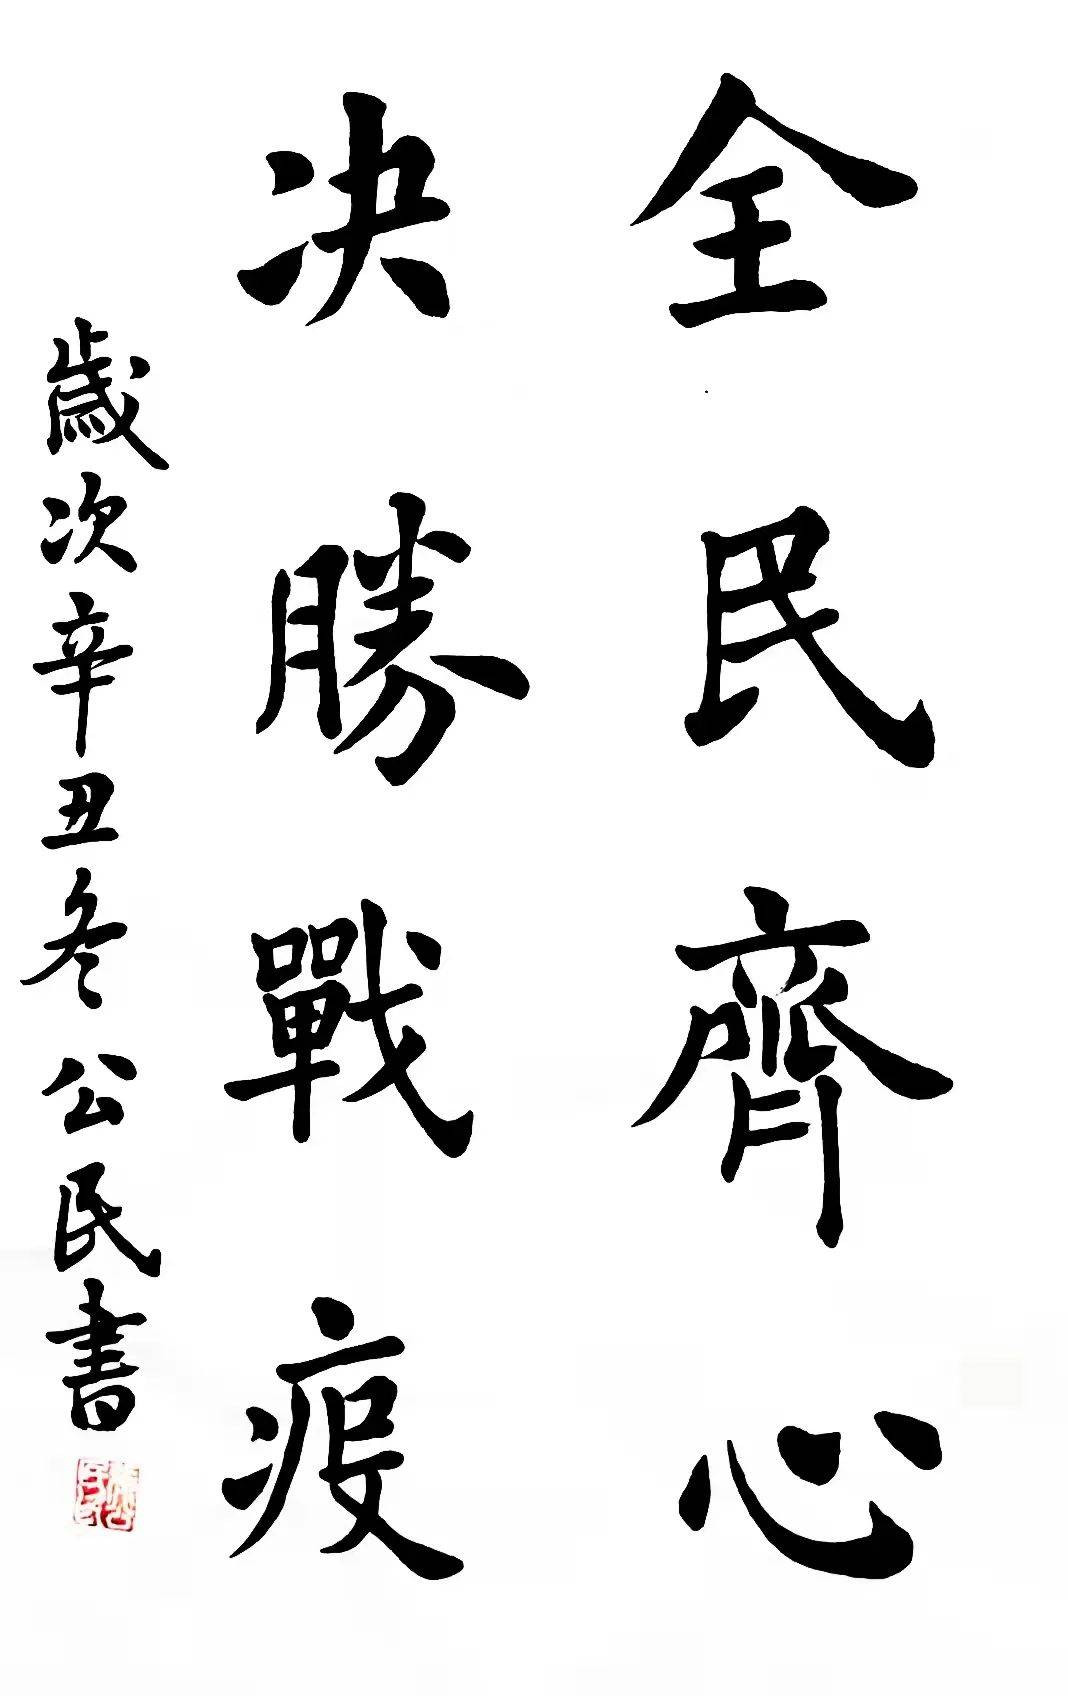 全民齊心
决勝戰疫
歲次辛丑冬公民書